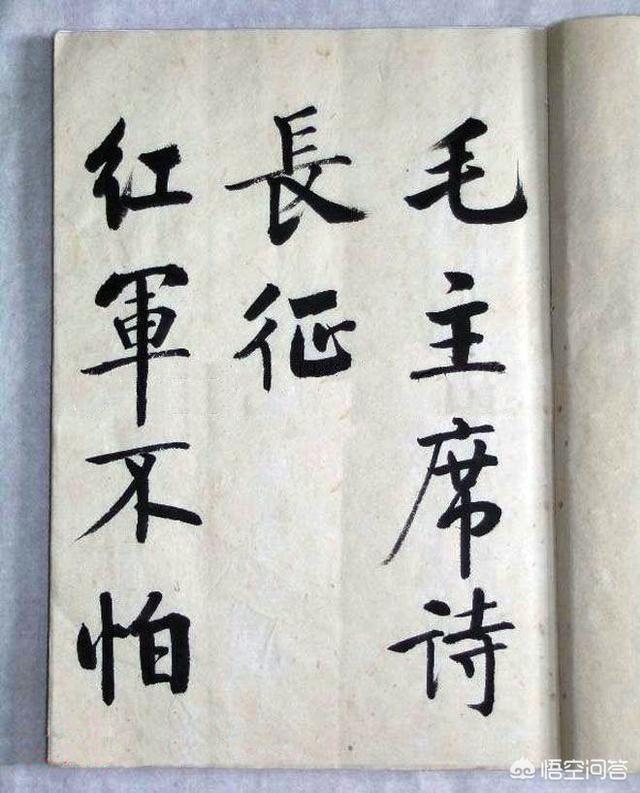 毛主席诗
長征
红軍不怕
悟空问答